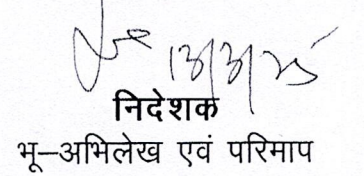 13/3/25
निदेशक
भू–अभिलेख एवं परिमाप